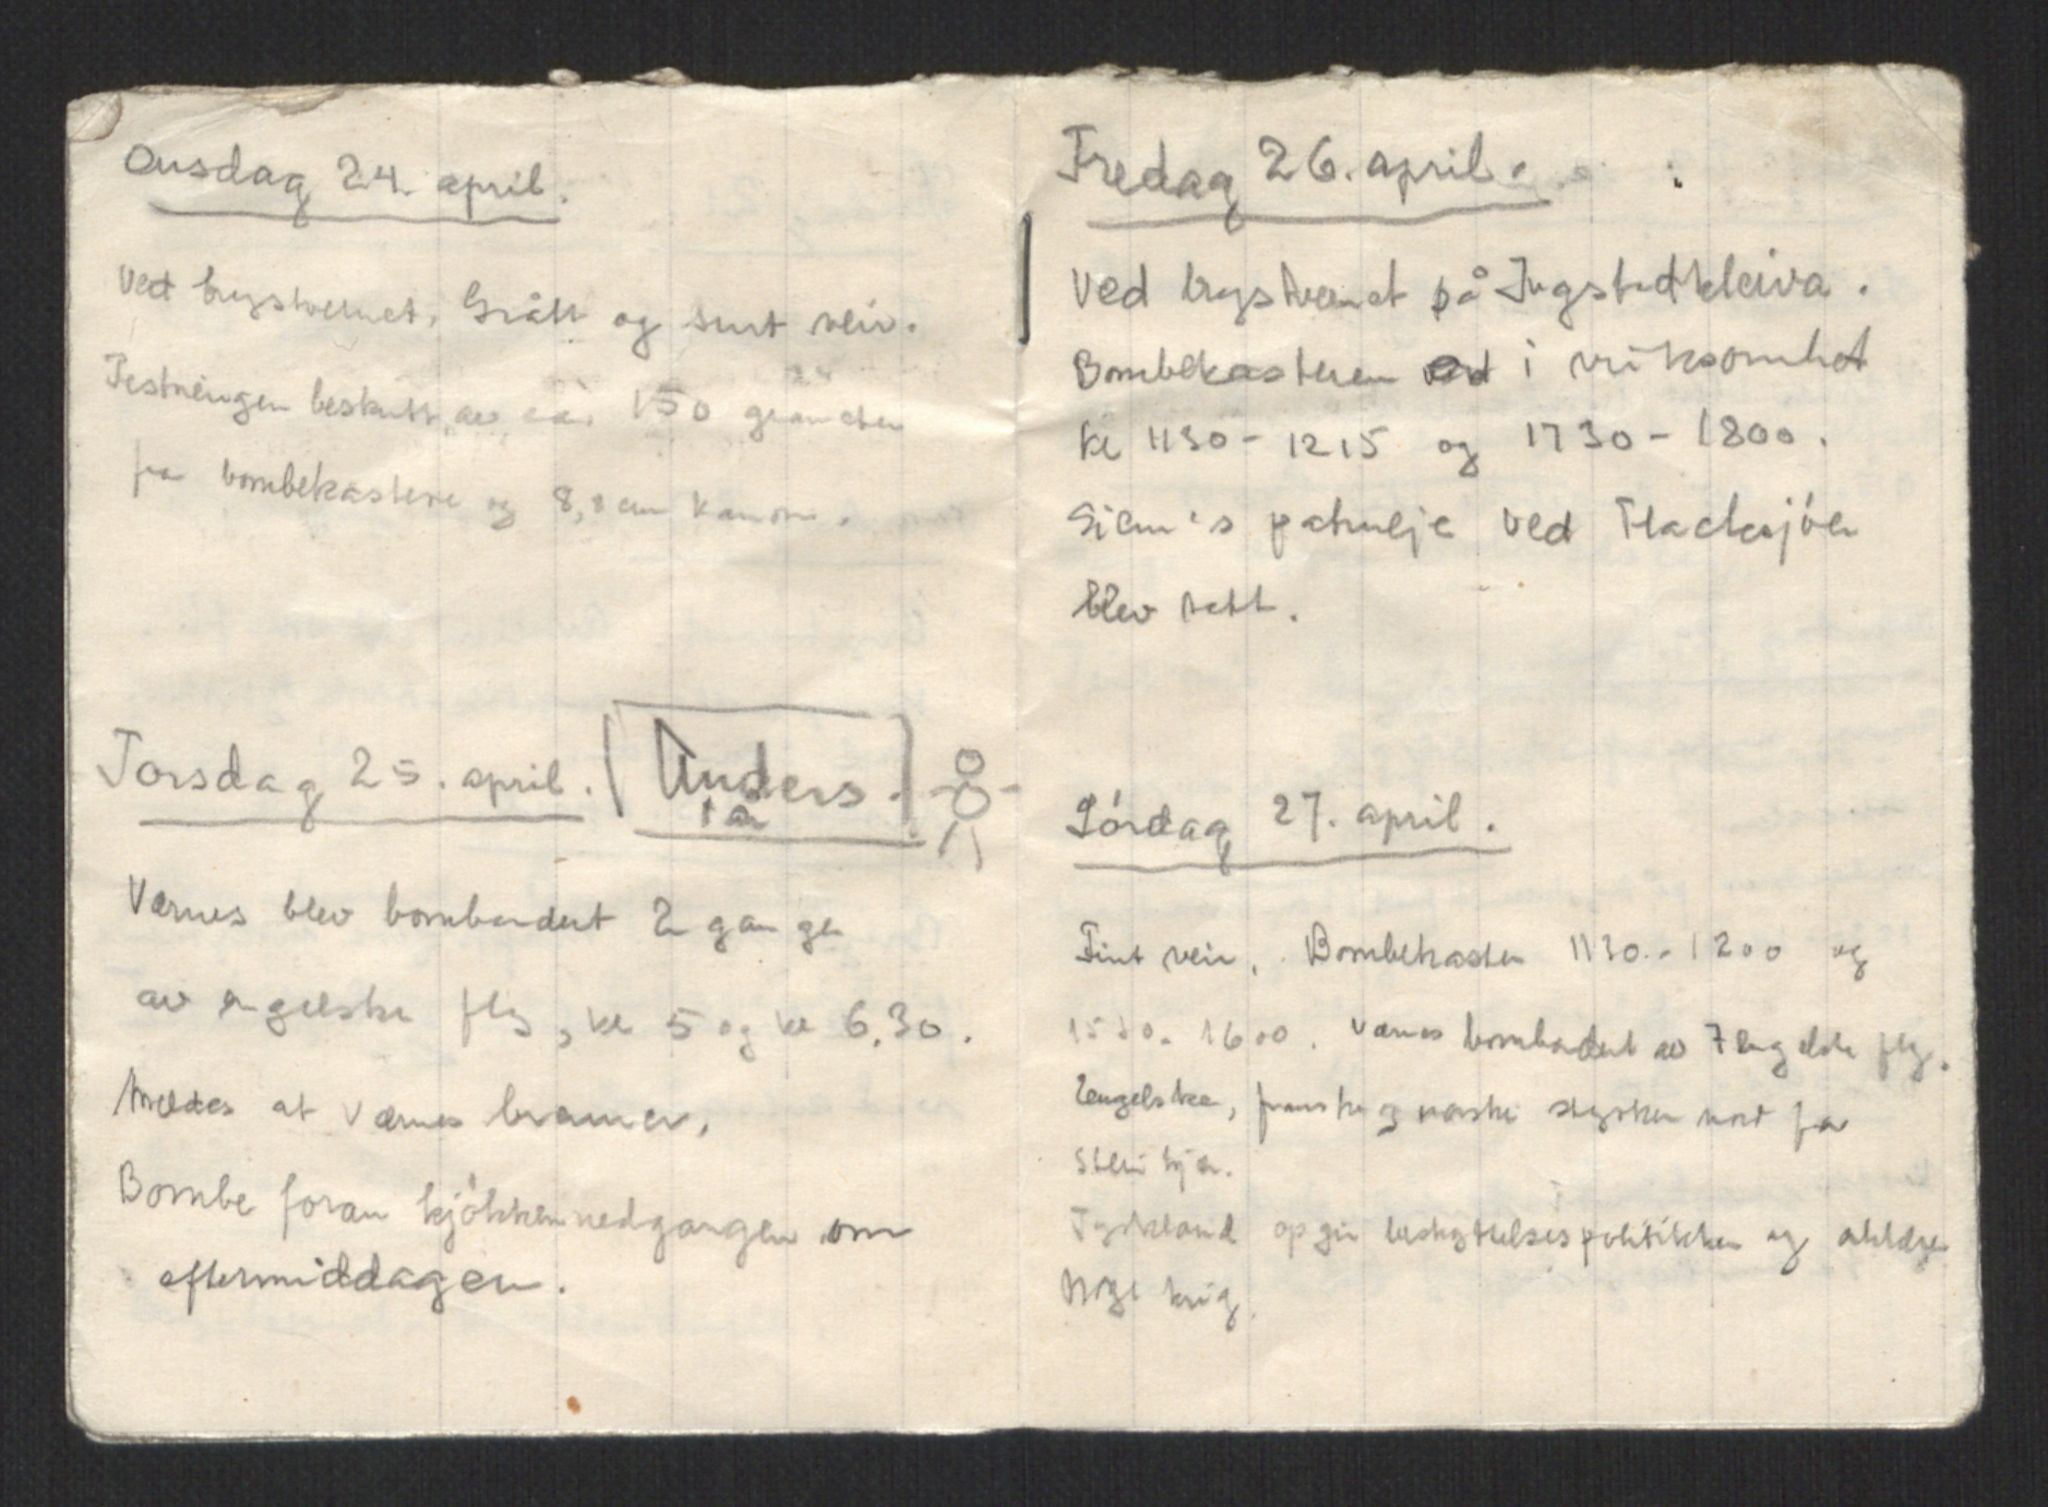 Onsdag 24. april.
Ved brystvernet. Grått og surt veir.
Festningen beskutt av ca. 150 granater
fra bombekastere og 8,8 cm kanon.
Torsdag 25. april. Anders
1 år
Værnes blev bombardert 2 ganger
av engelske fly, kl 5 og kl 6,30.
Meldes at Værnes brenner.
Bombe foran kjøkkennedgangen om
eftermiddagen.
Fredag 26. april.
Ved brystvernet på Ingstadkleiva.
Bombekasteren i virksomhet
kl 1130 - 1215 og 1730 - 1800.
patrulje ved
blev tatt.
Lørdag 27. april.
Fint veir. Bombekaster 1130 - 1200 og
1530 - 1600. Værnes bombardert av 7 engelske fly.
Engelske, franske og norske styrker nord for
Steinkjer.
Tyskland opgir beskyttelsespolitikken og erklærer
Norge krig.